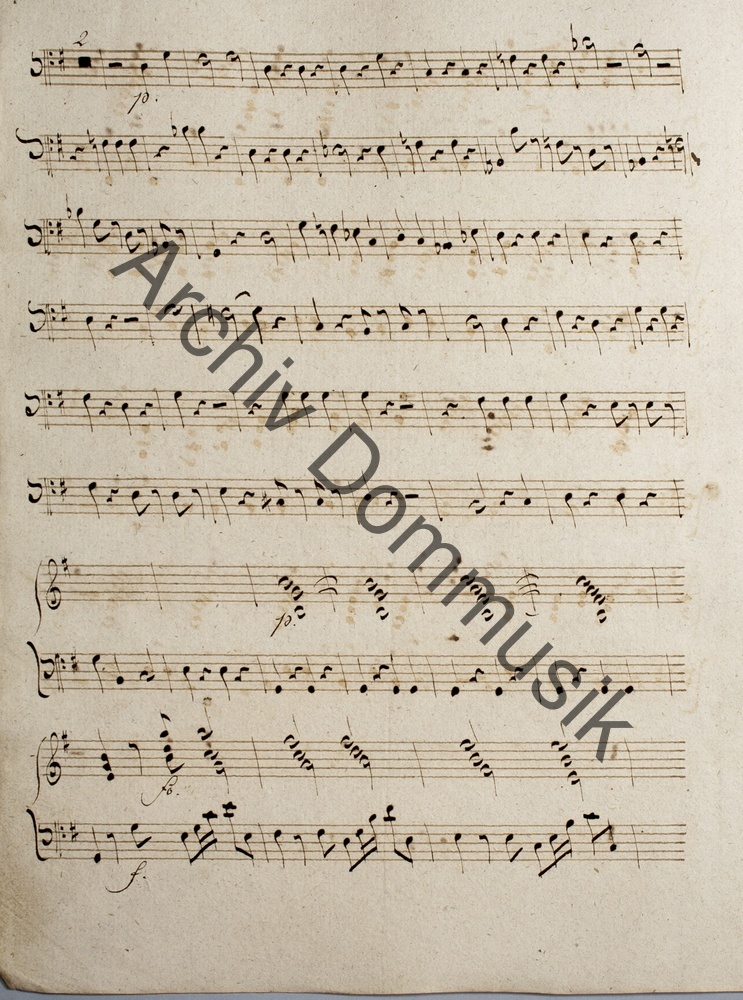 2
p.
Archiv Dommusik
p.
fo.
f.